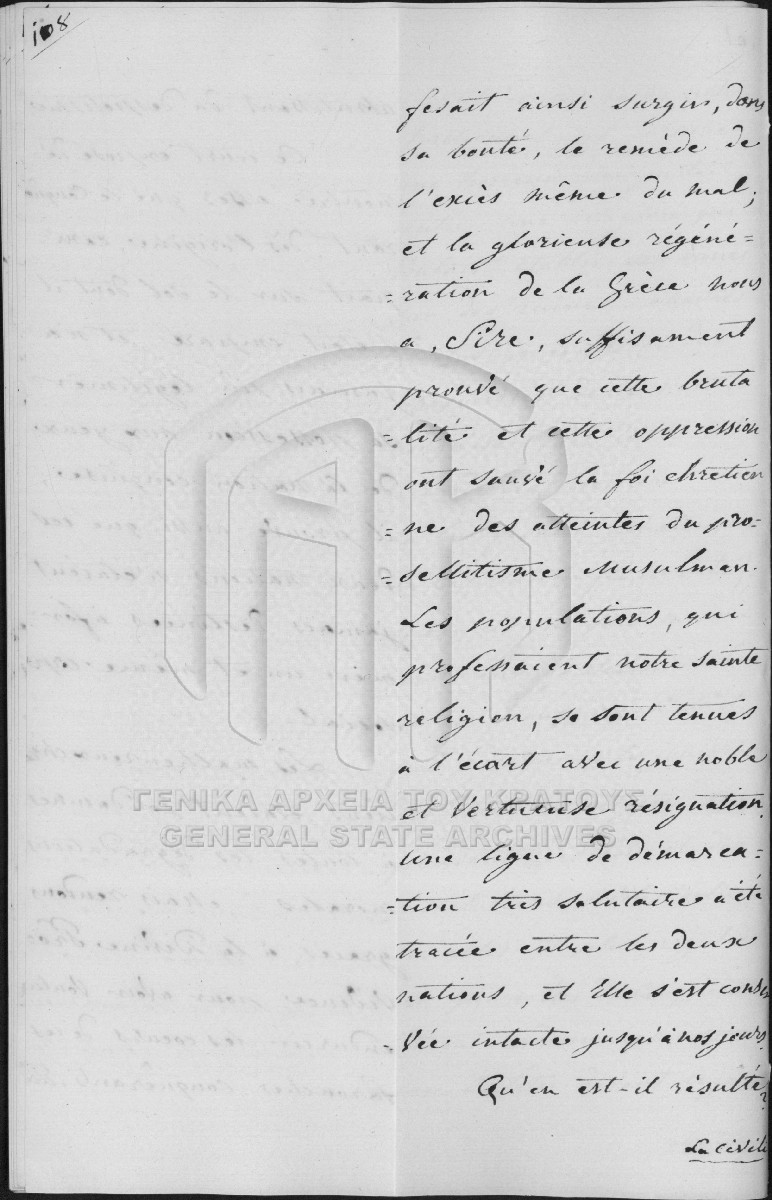 108
fesait ainsi surgir, dans
sa bonté, le remède de
l'exiès même du mal;
et la glorieuse régéné-
=ration de la Grèce nous
a, Sire, suffisament
prouvé que cette bruta
=lité et cette oppression
ont sauvé la foi chretien
=ne des atteintes du pro-
=sellitisme Musulman.
Les populations, qui
professaient notre sainte
religion, se sont tenues
à l'écart avec une noble
et vertueuse résignation,
ΓΕΝΙΚΑ ΑΡΧΕΙΑ ΤΟΥ ΚΡΑΤΟΥΣ
GENERAL STATE ARCHIVES
une ligne de démarca-
=tion très salutaire a été
tracée entre les deux
nations, et Elle s'est conser
=vée intacte jusqu'à nos jours.
Qu'en est-il résulté?
La civili